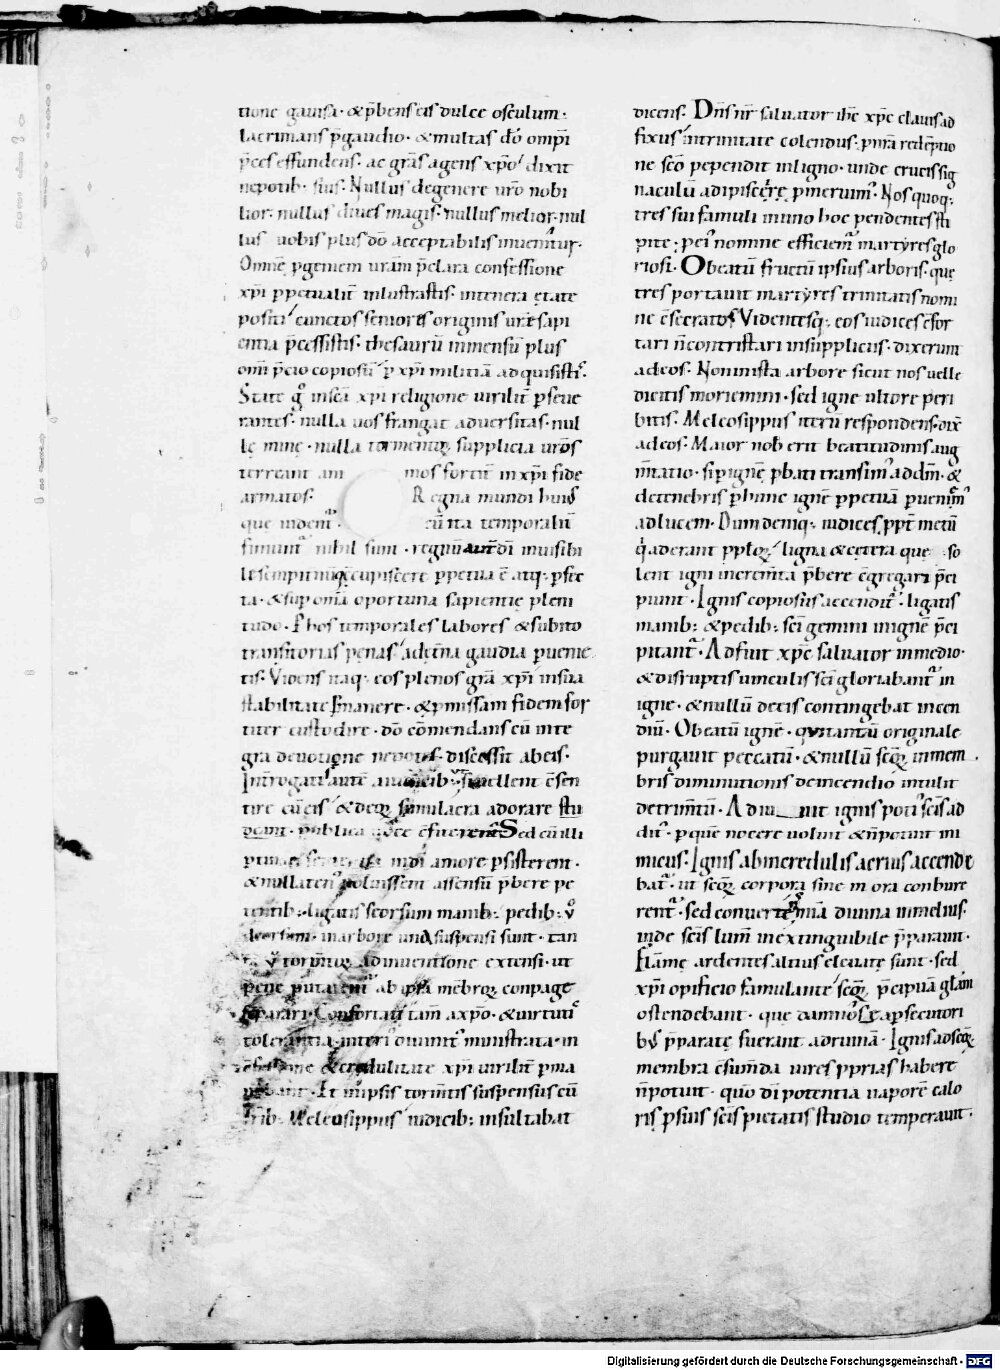 tione gauisa· &p̄bens eis dulce osculum·
lacrimans p̄gaudio· &multas dō omp̄i
p̄ces effundens· ac grās agens xp̄o' dixit
nepotib· suis· Nullus degenere urō nobi
lior· nullus diues magis· nullus melior· nul
lus uobis plus dō acceptabilis inuenitur·
Omnē p̄geniem urām p̄clara confessione
xp̄i ppetualit̄ inlustrastis· intenera ętate
positi' cunctos seniores originis urę sapi
entia p̄cessistis· thesaurū inmensū plus
om̄i p̄cio copiosū' p xp̄i militiā adquisisti·
State g° insc̄a xp̄i religione uirilit̄ pseue
rantes· nulla uos frangat aduersitas· nul
lę minę· nulla tormentoꝝ supplicia urōs
terreant ani mos fortit̄ inxp̄i fide
armatos· Regna mundi huiꝰ
que uident᷑· cū ita temporaliū
finiunt᷑ nihil sunt· regnū aut̄ dī inuisibi
le sempitnūq; cupiscere ppetua ē atq; pfec
ta· &sup om̄a oportuna sapientię pleni
tudo· Phos temporales labores &subito
transitorias penas' adęt̄na gaudia puenie
tis· Videns itaq; eos plenos grā xp̄i insua
stabilitate pmanere· &pmissam fidem for
titer custodire· dō cōmendans eū inte
gra deuotione nepotes· discessit abeis·
Int̄rogati aut̄ aiudicib; si uellent ēsen
tire cū eis' &deoꝝ simulacra adorare stu
p̄ublica uoce
&nullaten᷑ uoluissent assensū p̄bere pe
tentib· ligatis seorsum manib; pedib; ꝟ
deorsum· inarbore una suspensi sunt· tan
tū ꝟ tormtoꝝ adinuentione extensi· ut
pene putarent᷑ ab ipsa mēbroꝝ conpage
separari· Confortati tam̄ axp̄o· &uirtuti᷑
tolerantia interi᷑ ouinit᷑ ministrata· in
&credulitate xp̄i uirilit̄ pma
nebant· Et inipsis tormtis suspensus cū
frīb; Meleosippus iudicib; insultabat
dicens· Dn̄s nr̄ saluator ihc xp̄c clauis ad
fixus' intrinitate colendus· p nr̄a redēptio
ne scōm pependit inligno· unde crucis sig
naculū adipiscere pmeruim᷑· Nos quoq;
tres sui famuli inuno hoc pendentes sti
pite· pei᷑ nomine efficiem᷑ martyres glo
riosi· O beatū fructū ipsius arboris· quę
tres portauit martyres trinitatis nomi
ne ēsecratos· Videntesq; eos iudices ēfor
tari n̄contristari insuppliciis· dixerunt
adeos· Non inista arbore sicut nos uelle
dicitis moriemini· sed igne ultore peri
bitis· Meleosippus iterū respondens· dix̄
adeos· Maior nob̄ erit beatitudinis aug
m̄tatio· si pignē pbati transim᷑ addm̄· &
detenebris phunc ignē ppetuā puenim᷑
adlucem· Dum deniq; iudices ppt̄ metū
q̄ aderant pploꝝ' ligna &cetera quę so
lent igni increm̄ta p̄bere ēgregari p̄ci
piunt· Ignis copiosus accendit᷑· ligatis
manib; &pedib; sc̄i gemini inignē p̄ci
pitant᷑· Adfuit xp̄c saluator inmedio·
&disruptis uinculis sc̄i gloriabant᷑ in
igne· &nullū deeis contingebat incen
diū· O beatū ignē· qui tantū originale
purgauit peccatū· &nullū seoꝝ inmem
bris diminutionis deincendio intulit
detrim̄tū· Adiu uit ignis poti᷑ sc̄is ad
dit᷑· pquē nocere uoluit &n̄potuit ini
micus· Ignis abincredulis acrius accende
bat᷑· ut scoꝝ corpora sine mora conbure
rent᷑· sed conuertenā diuina inmelius·
inde sc̄is lum̄ inextinguibile p̄parauit·
Flāme ardentes altius eleuatę sunt· sed
xp̄i opificio famulante' scoꝝ p̄cipuā glām
ostendebant· quę damnose a psecutori
bꝰ p̄paratę fuerant adruinā· Ignis ad scoꝝ
membra ēsumda uires pprias habere
n̄potuit· quō dī potentia uaporē calo
ris psuis sc̄is pietatis studio temperauit·
Digitalisierung gefördert durch die Deutsche Forschungsgemeinschaft - DFG